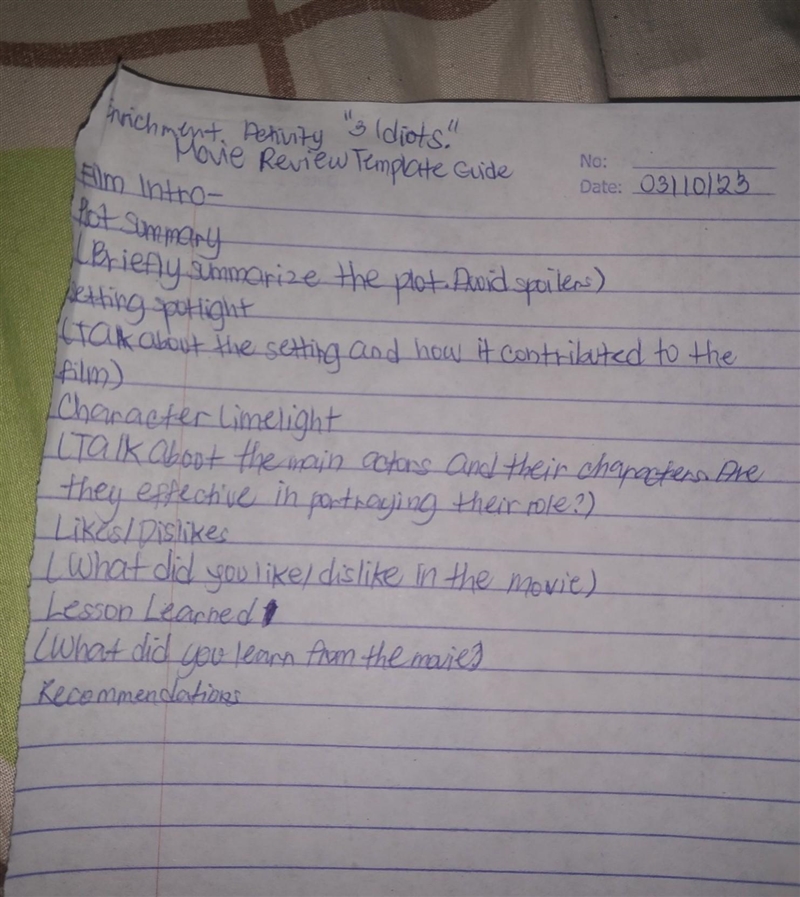 Enrichment Activity "3 Idiots."
Movie Review Template Guide
No:
Date: 03/10/23
Film Intro-
Plot Summary
(Briefly summarize the plot. Avoid spoilers)
Setting spotlight
(Talk about the setting and how it contributed to the
film)
Character Limelight
(Talk about the main actors and their characters. Are
they effective in portraying their role?)
Likes/Dislikes
(What did you like/dislike in the movie)
Lesson Learned
(What did you learn from the movie?
Recommendations